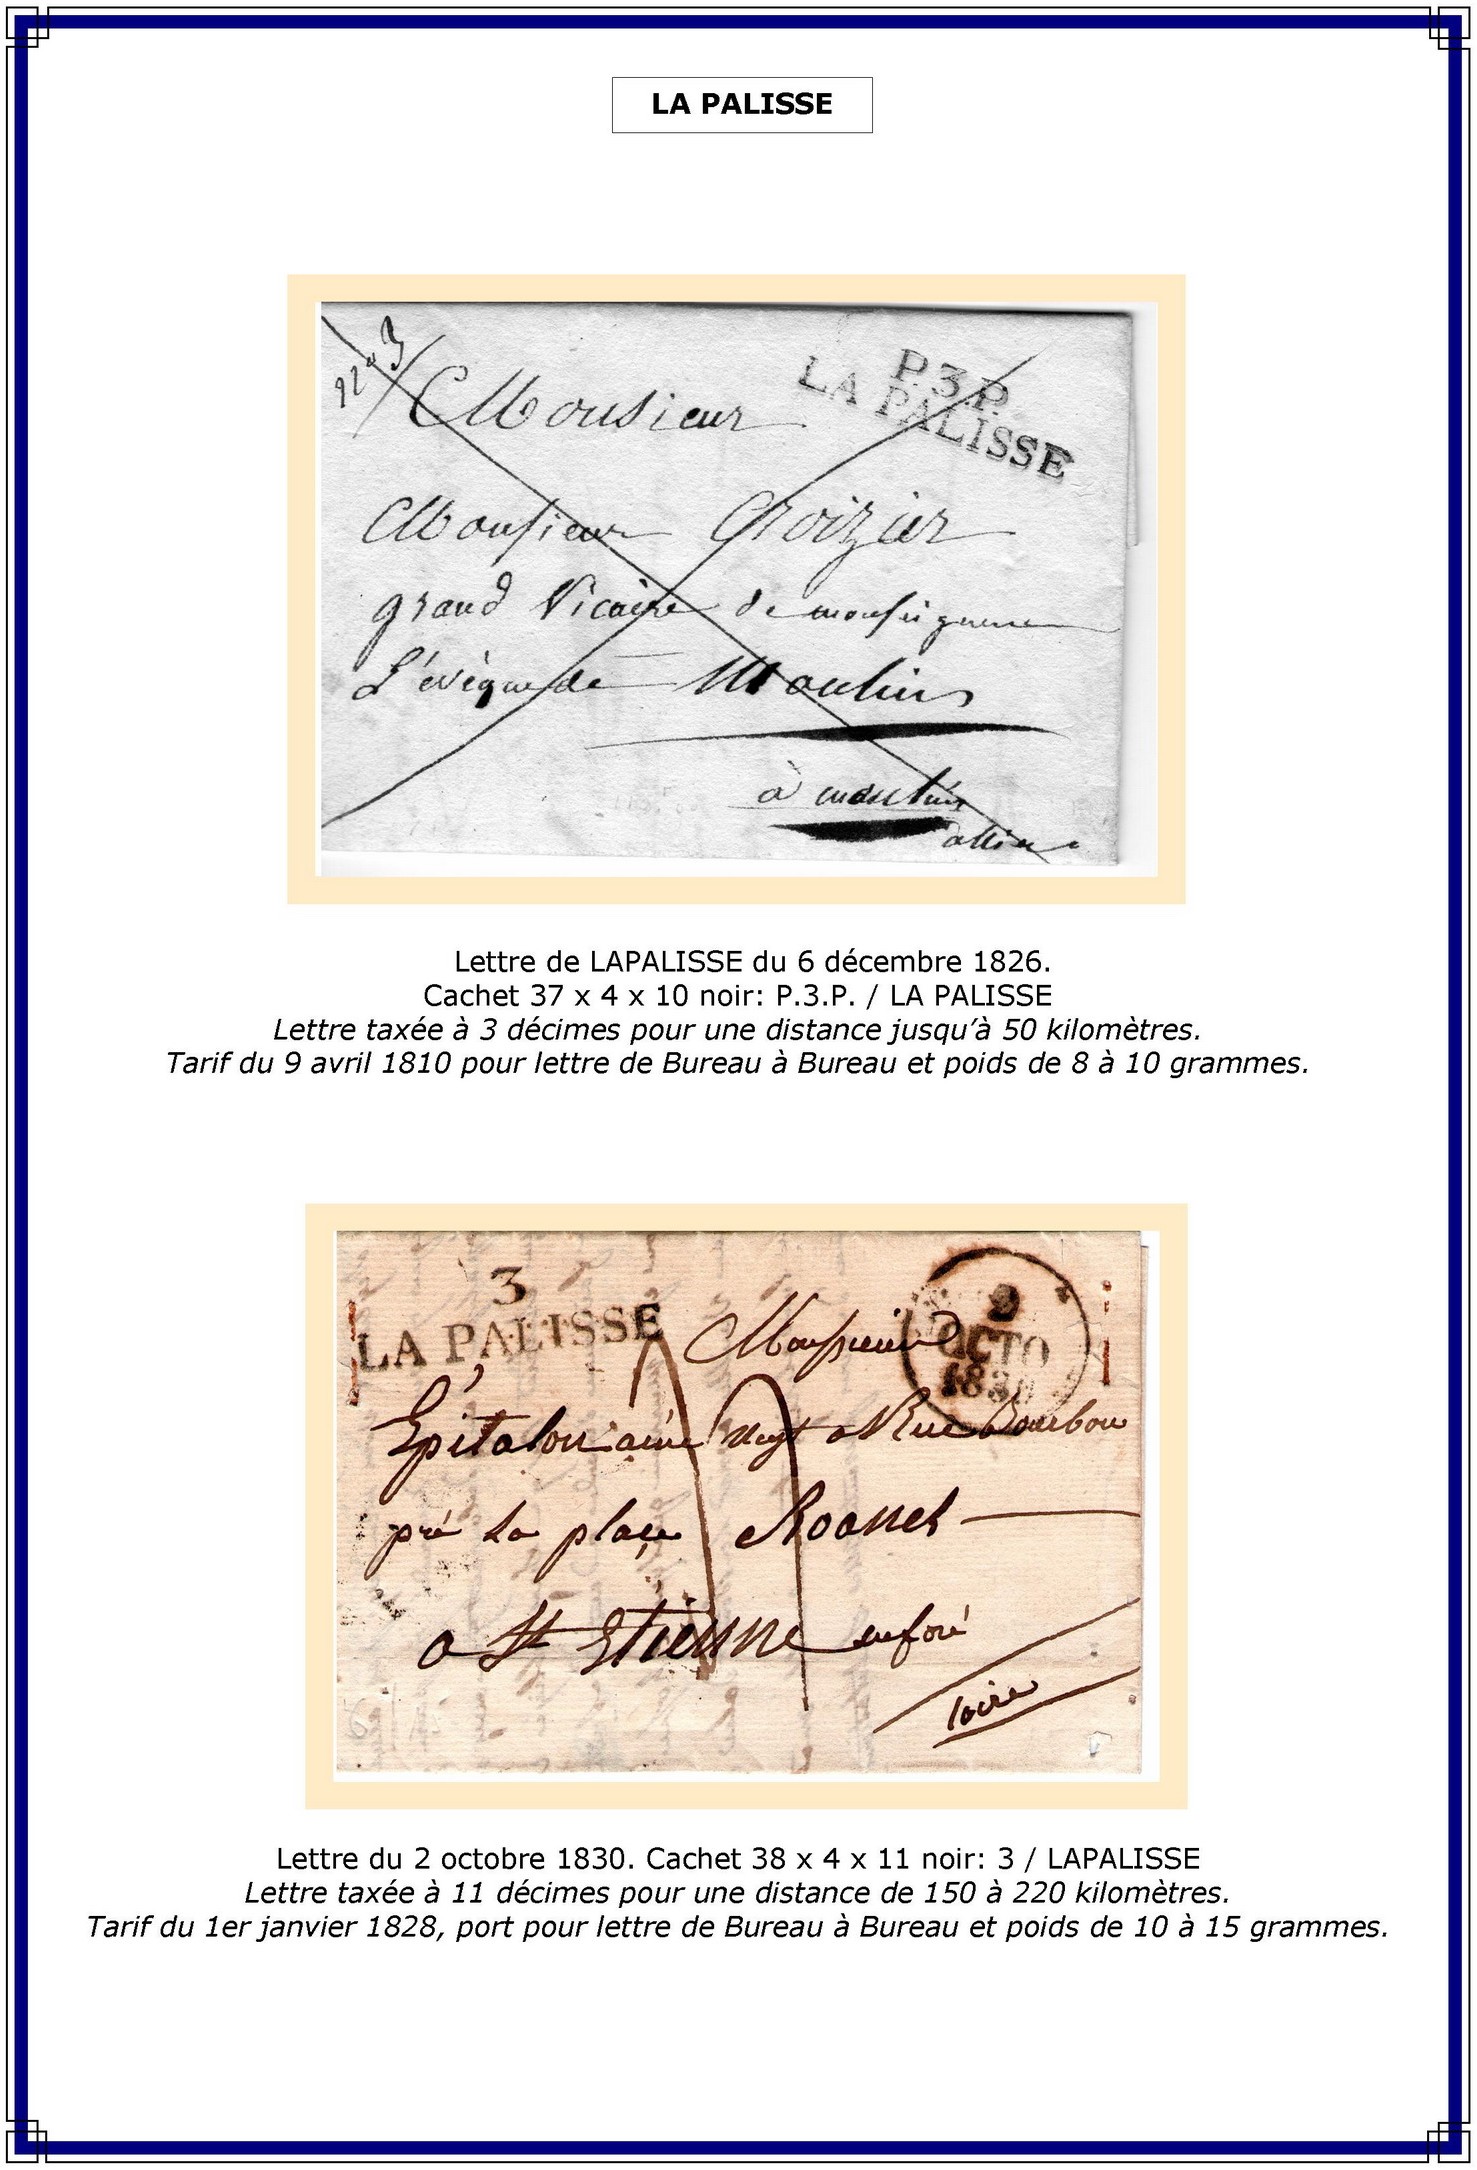 LA PALISSE
n° 3
P.3.P.
LA PALISSE
Monsieur
Monsieur Croizier
grand Vicaire de monseigneur
L'évèque de Moulins
à moulins
allier
Lettre de LAPALISSE du 6 décembre 1826.
Cachet 37 x 4 x 10 noir: P.3.P. / LA PALISSE
Lettre taxée à 3 décimes pour une distance jusqu'à 50 kilomètres.
Tarif du 9 avril 1810 pour lettre de Bureau à Bureau et poids de 8 à 10 grammes.
3
LA PALISSE
OCTO
Monsieur
Epitalon ainé Negt Rue Bourbon
pré La place Roannel
a St Etienne enforé
loire
Lettre du 2 octobre 1830. Cachet 38 x 4 x 11 noir: 3 / LAPALISSE
Lettre taxée à 11 décimes pour une distance de 150 à 220 kilomètres.
Tarif du 1er janvier 1828, port pour lettre de Bureau à Bureau et poids de 10 à 15 grammes.